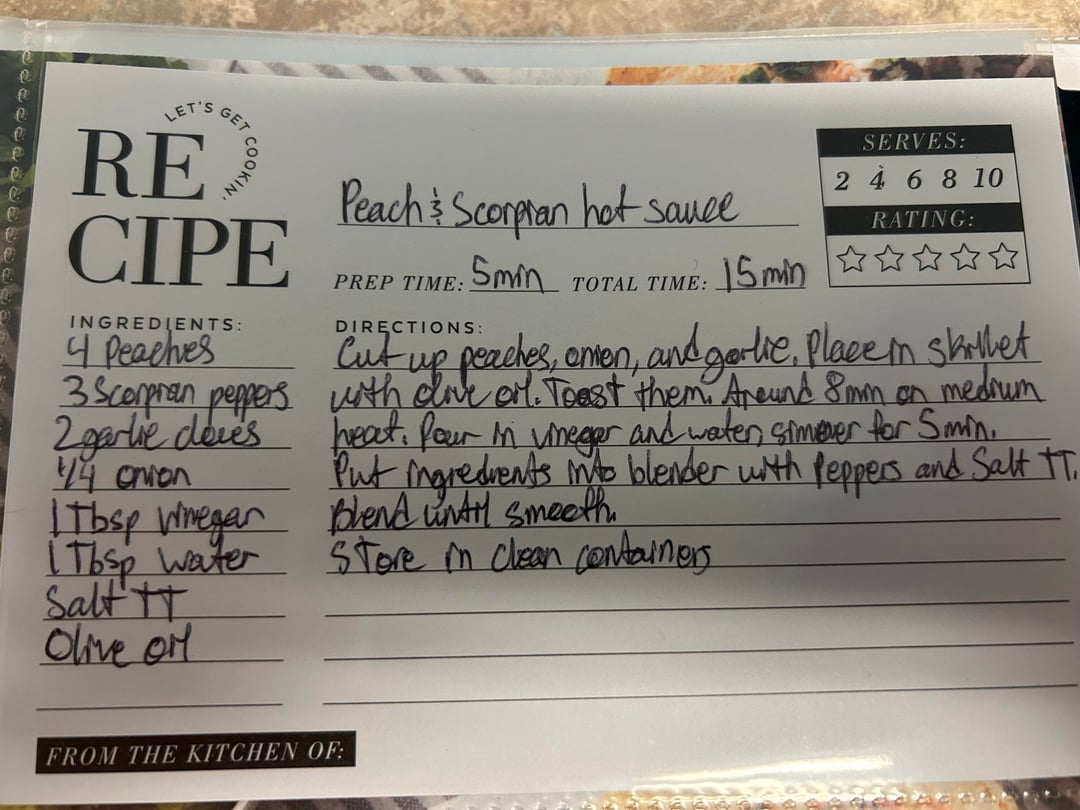 LET'S GET COOKIN'.
RE
CIPE
Peach & Scorpion hot sauce
PREP TIME: 5min TOTAL TIME: 15min
SERVES:
2 4 6 8 10
RATING:
INGREDIENTS:
4 Peaches
3 Scorpion peppers
2 garlic cloves
1/4 onion
1 Tbsp Vinegar
1 Tbsp Water
Salt TT
Olive oil
DIRECTIONS:
Cut up peaches, onion, and garlic. Place in skillet
with olive oil. Toast them. Around 8min on medium
heat. Pour in vinegar and water, simmer for 5min.
Put ingredients into blender with Peppers and Salt TT.
Blend until smooth.
Store in clean containers
FROM THE KITCHEN OF: